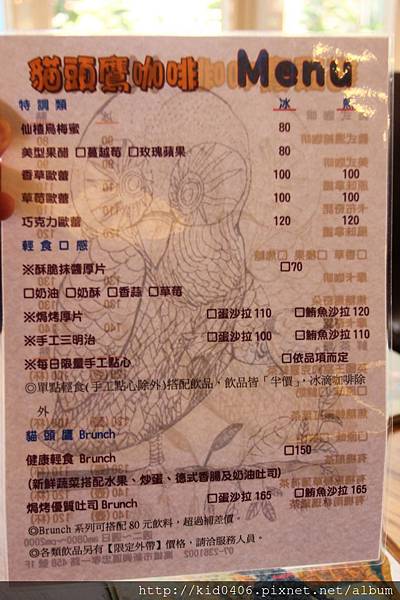 貓頭鷹咖啡 Menu
特調類 冰 熱
仙楂烏梅蜜 80
美型果醋 □蔓越莓 □玫瑰蘋果 80
香草歐蕾 100 100
草莓歐蕾 100 100
巧克力歐蕾 120 120
輕食口感
※酥脆抹醬厚片 □70
□奶油 □奶酥 □香蒜 □草莓
※焗烤厚片 □蛋沙拉 110 □鮪魚沙拉 120
※手工三明治 □蛋沙拉 100 □鮪魚沙拉 110
※每日限量手工點心 □依品項而定
◎單點輕食(手工點心除外)搭配飲品，飲品皆「半價」，冰滴咖啡除
外
貓頭鷹 Brunch
健康輕食 Brunch □150
(新鮮蔬菜搭配水果、炒蛋、德式香腸及奶油吐司)
焗烤優質吐司 Brunch □蛋沙拉 165 □鮪魚沙拉 165
◎Brunch 系列可搭配 80 元飲料，超過補差價。
◎各類飲品另有【限定外帶】價格，請洽服務人員。
07-2361002
http://kid0406.pixnet.net/album